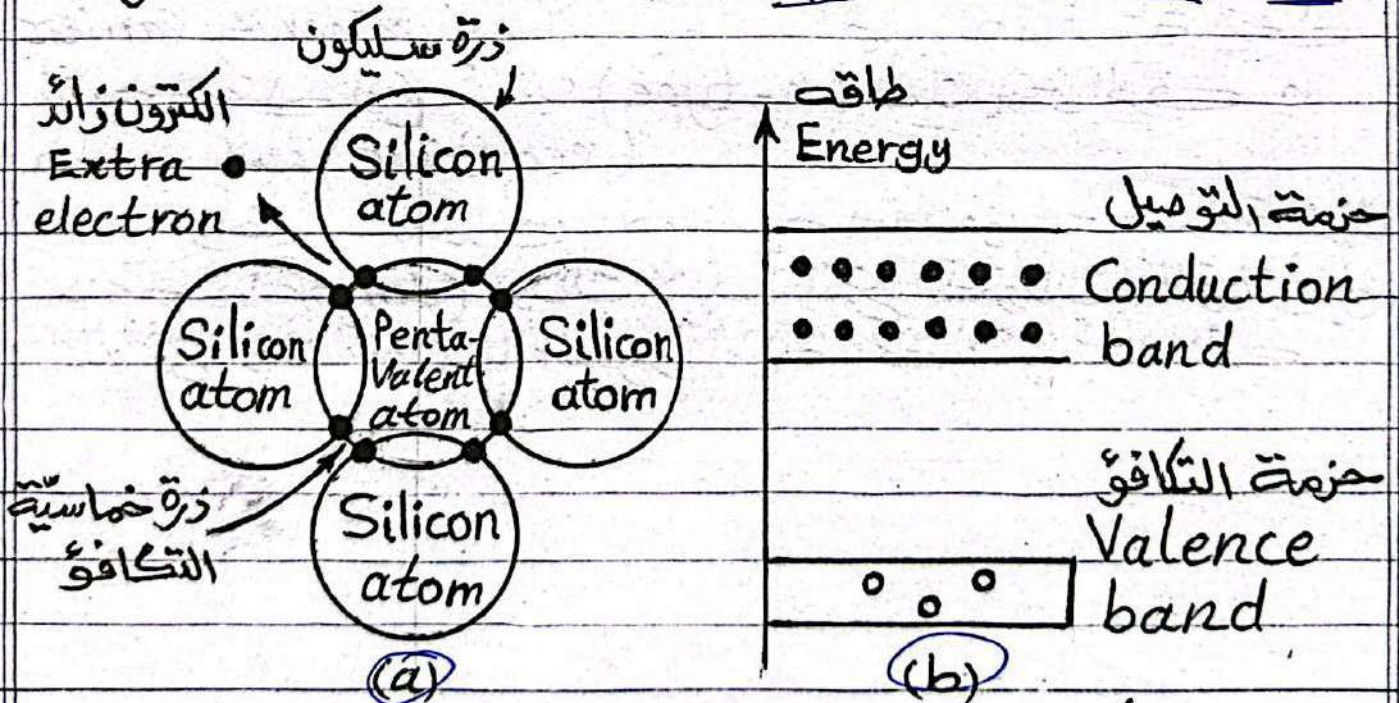 ذرة سليكون
الكترون زائد
Extra
electron
Silicon
atom
Silicon
atom
Penta-
Valent
atom
Silicon
atom
ذرة خماسيّة
التكافؤ
Silicon
atom
(a)
طاقه
Energy
حزمة التوصيل
Conduction
band
حزمة التكافؤ
Valence
band
(b)